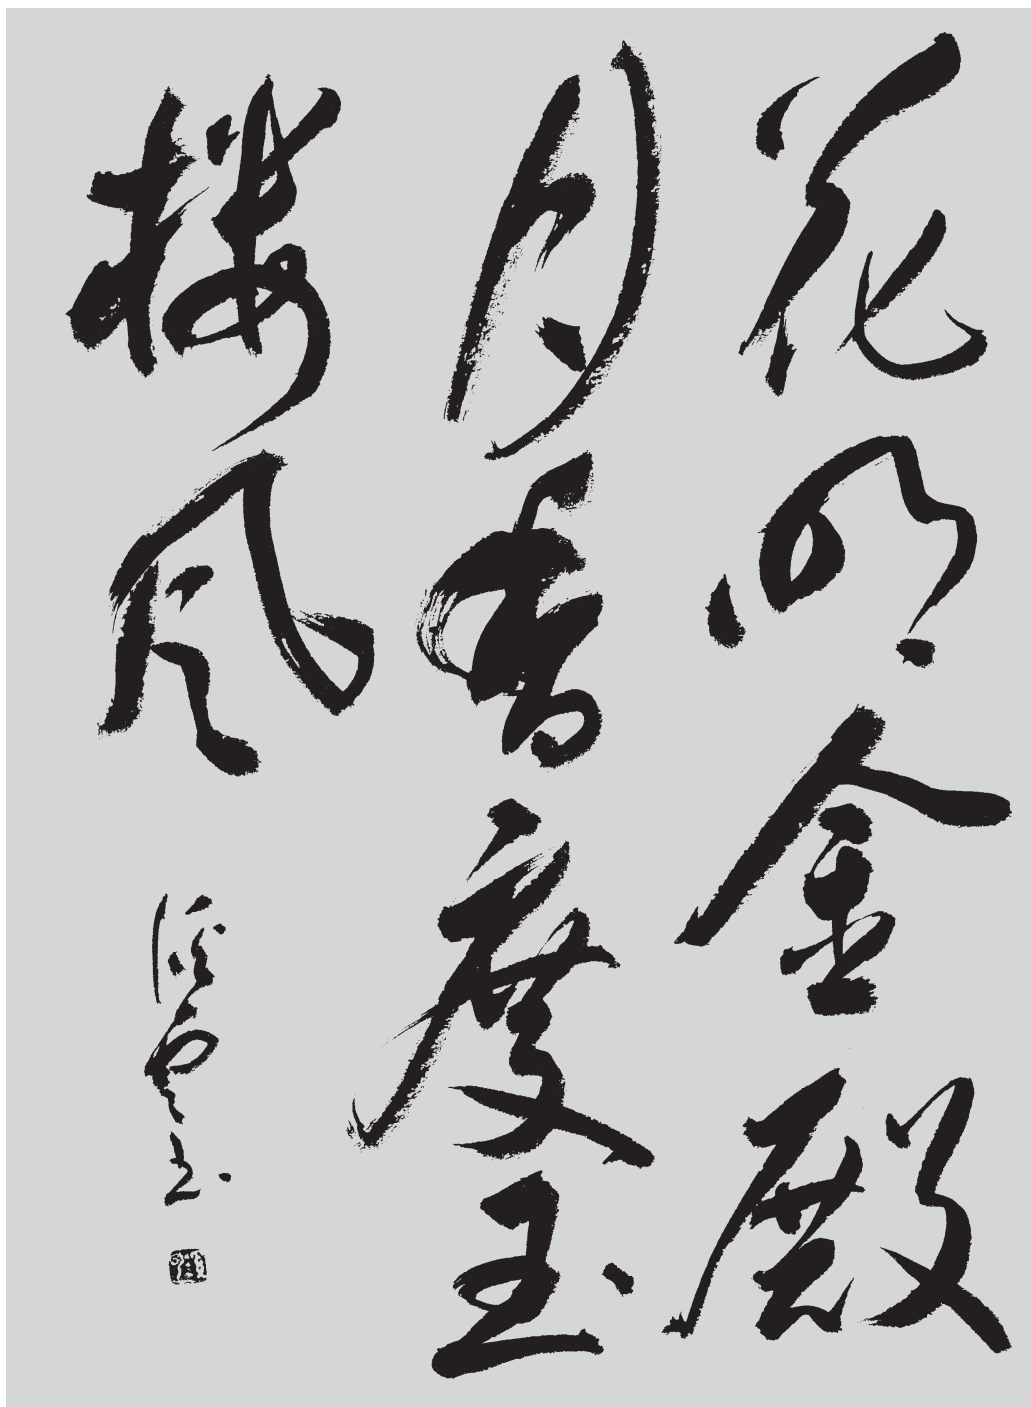 花明金殿
月香度玉
楼風